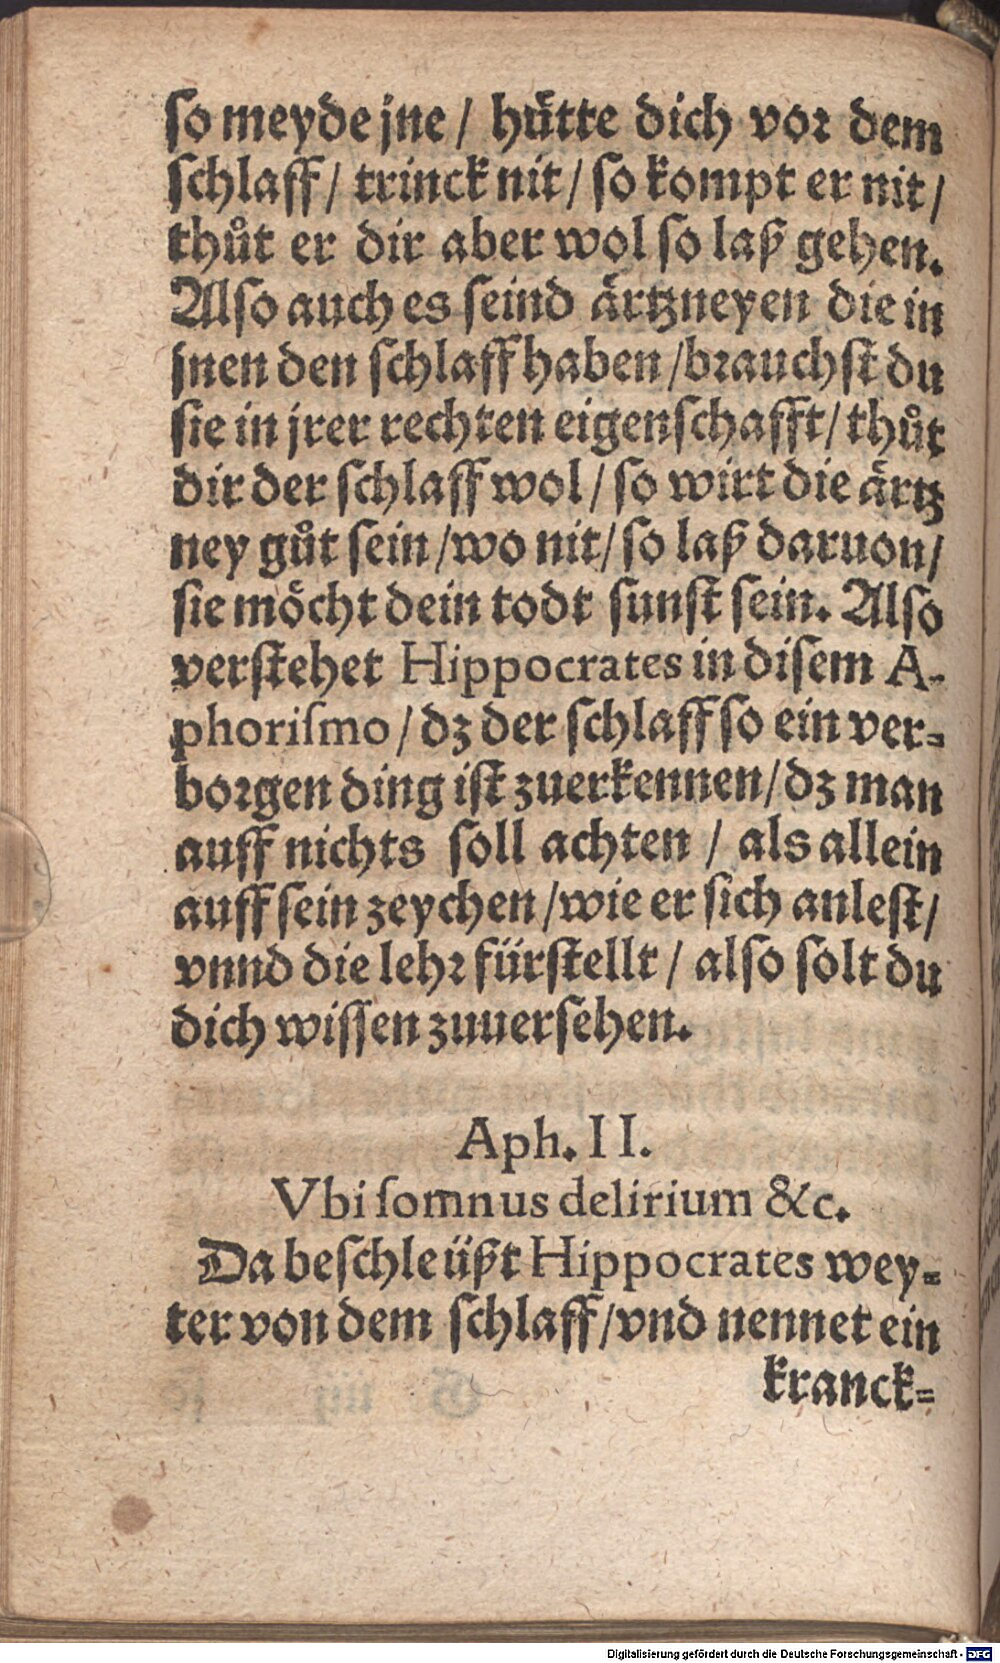 so meyde jne / hütte dich vor dem
schlaff / trinck nit / so kompt er nit /
thůt er dir aber wol so laß gehen.
Also auch es seind ärtzneyen die in
jnen den schlaff haben / brauchst du
sie in jrer rechten eigenschafft / thůt
dir der schlaff wol / so wirt die ärtz
ney gůt sein / wo nit / so laß daruon /
sie möcht dein todt sunst sein. Also
verstehet Hippocrates in disem A-
phoriſmo / dz der schlaff so ein ver-
borgen ding ist zuerkennen / dz man
auff nichts soll achten / als allein
auff sein zeychen / wie er sich anlest /
vnnd die lehr fürstellt / also solt du
dich wissen zuuersehen.
Aph. II.
Vbi ſomnus delirium &c.
Da beschleüßt Hippocrates wey-
ter von dem schlaff / vnd nennet ein
kranck-
Digitalisierung gefördert durch die Deutsche Forschungsgemeinschaft - DFG